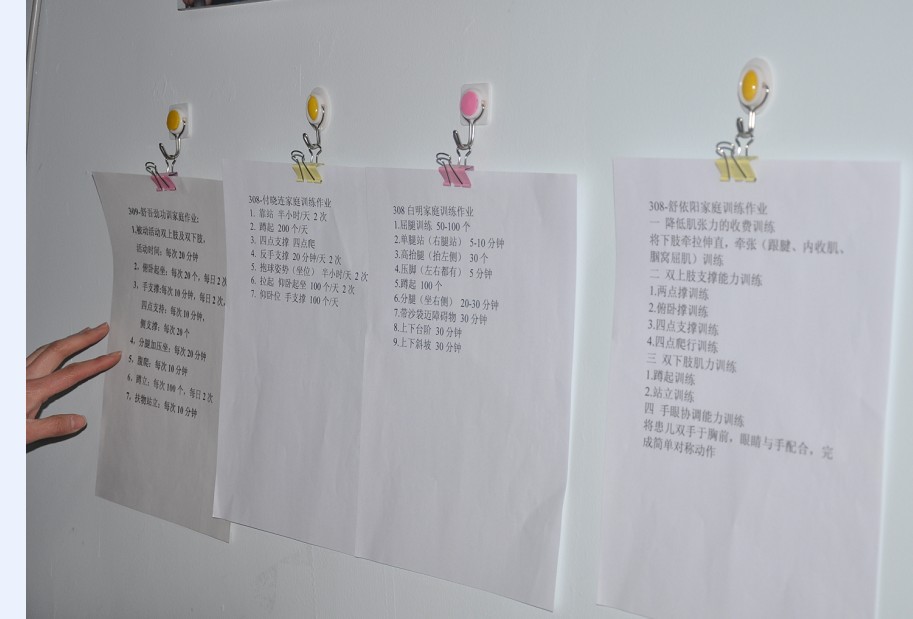 309-舒谷焓功训家庭作业:
1.被动活动双上肢及双下肢,
活动时间: 每次20分钟
2. 俯卧起坐: 每次20个, 每日2次
3. 手支撑:每次10分钟, 每日2次,
四点支持: 每次10分钟,
侧支撑: 每次20个
4. 分腿加压坐: 每次20分钟
5. 腹爬: 每次10分钟
6. 蹲立: 每次100个, 每日2次
7. 扶物站立: 每次10分钟
308-付晓连家庭训练作业
1. 靠站 半小时/天 2次
2. 蹲起 200个/天
3. 四点支撑 四点爬
4. 反手支撑 20分钟/天 2次
5. 抱球姿势 (坐位) 半小时/天 2次
6. 拉起 仰卧起坐 100个/天 2次
7. 仰卧位 手支撑 100个/天
308 白明家庭训练作业
1.屈腿训练 50-100个
2.单腿站 (右腿站) 5-10分钟
3.高抬腿 (抬左侧) 30个
4.压脚 (左右都有) 5分钟
5.蹲起 100个
6.分腿 (坐右侧) 20-30分钟
7.带沙袋迈障碍物 30分钟
8.上下台阶 30分钟
9.上下斜坡 30分钟
308-舒依阳家庭训练作业
一 降低肌张力的收费训练
将下肢牵拉伸直, 牵张 (跟腱、内收肌、
腘窝屈肌) 训练
二 双上肢支撑能力训练
1.两点撑训练
2.俯卧撑训练
3.四点支撑训练
4.四点爬行训练
三 双下肢肌力训练
1.蹲起训练
2.站立训练
四 手眼协调能力训练
将患儿双手于胸前, 眼睛与手配合, 完
成简单对称动作